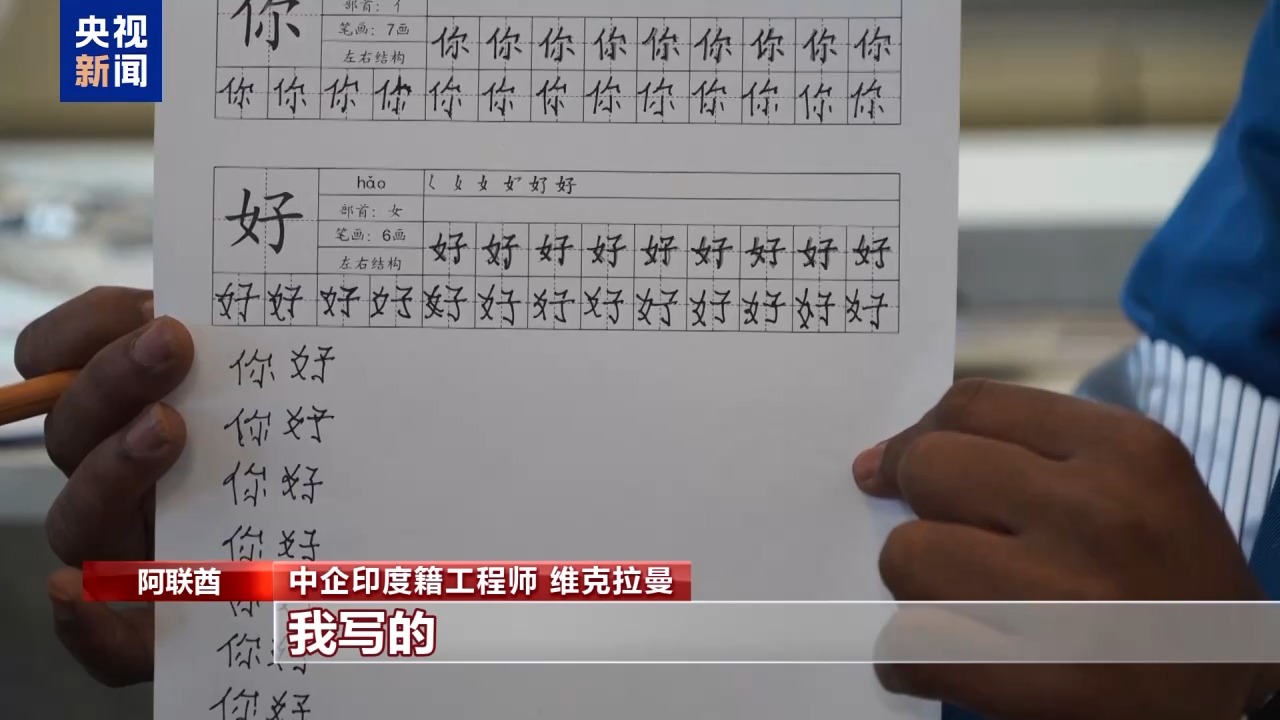 央视
新闻
你
部首：亻
笔画：7画
左右结构
你 你 你 你 你 你 你 你 你
你 你 你 你 你 你 你 你 你 你 你 你 你
好
hǎo
部首：女
笔画：6画
左右结构
好 好 好 好 好 好 好 好 好
好 好 好 好 好 好 好 好 好 好 好 好 好
你好
你好
你好
你好
阿联酋
中企印度籍工程师 维克拉曼
我写的
你好
你好